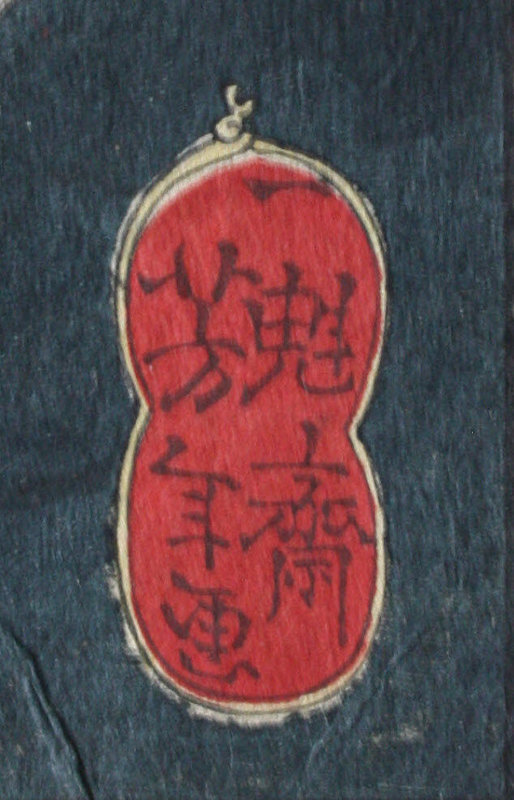 一魁齋
芳年画